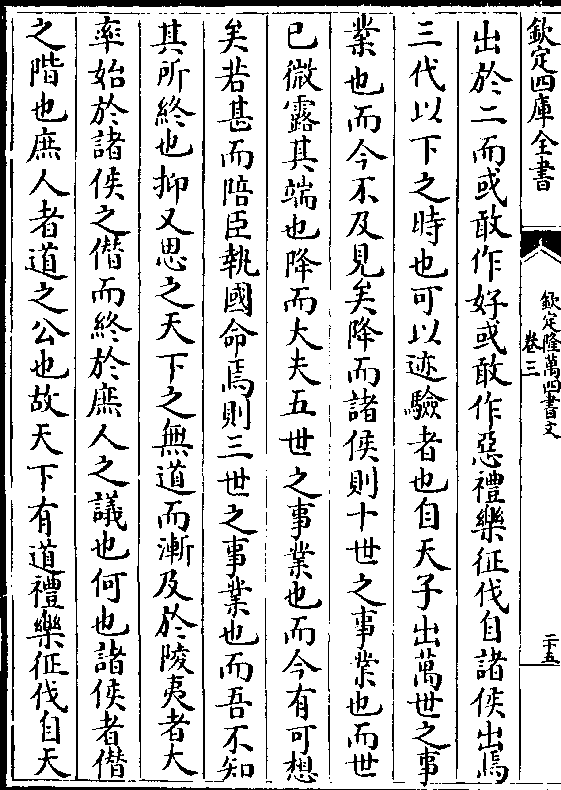 欽定四庫全書
欽定隆萬四書文
卷三
二十五
出於二而或敢作好或敢作惡禮樂征伐自諸侯出焉
三代以下之時也可以迹驗者也自天子出萬世之事
業也而今不及見矣降而諸侯則十世之事業也而世
已微露其端也降而大夫五世之事業也而今有可想
矣若甚而陪臣執國命焉則三世之事業也而吾不知
其所終也抑又思之天下之無道而漸及於陵夷者大
率始於諸侯之僭而終於庶人之議也何也諸侯者僭
之階也庶人者道之公也故天下有道禮樂征伐自天